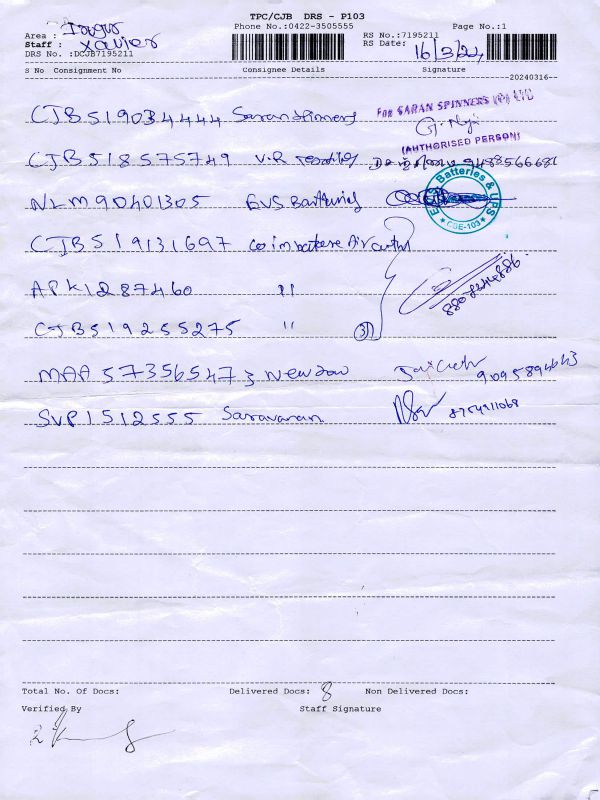 TPC/CJB DRS - P103
Area :
Phone No.:0422-3505555
Page No.:1
Staff : Xavier
RS No.:7195211
RS Date: 16/3/24
DRS No. :DCJB7195211
S No Consignment No Consignee Details Signature
--20240316--
CJB519034444 Saran Spinners
For SARAN SPINNERS (P) LTD
(AUTHORISED PERSON)
CJB518575749 V.R Textiles 9488566681
NLM90401305 EVS Batteries
Batteries & UPS
* CBE-103 *
CJB519131697 Coimbatore Air
APK1287460 "
8808244886
CJB519255275 " 3
MAA573565473
9095894643
SVP1512555 Saravanan 8754911068
Total No. Of Docs: Delivered Docs: 8 Non Delivered Docs:
Verified By Staff Signature